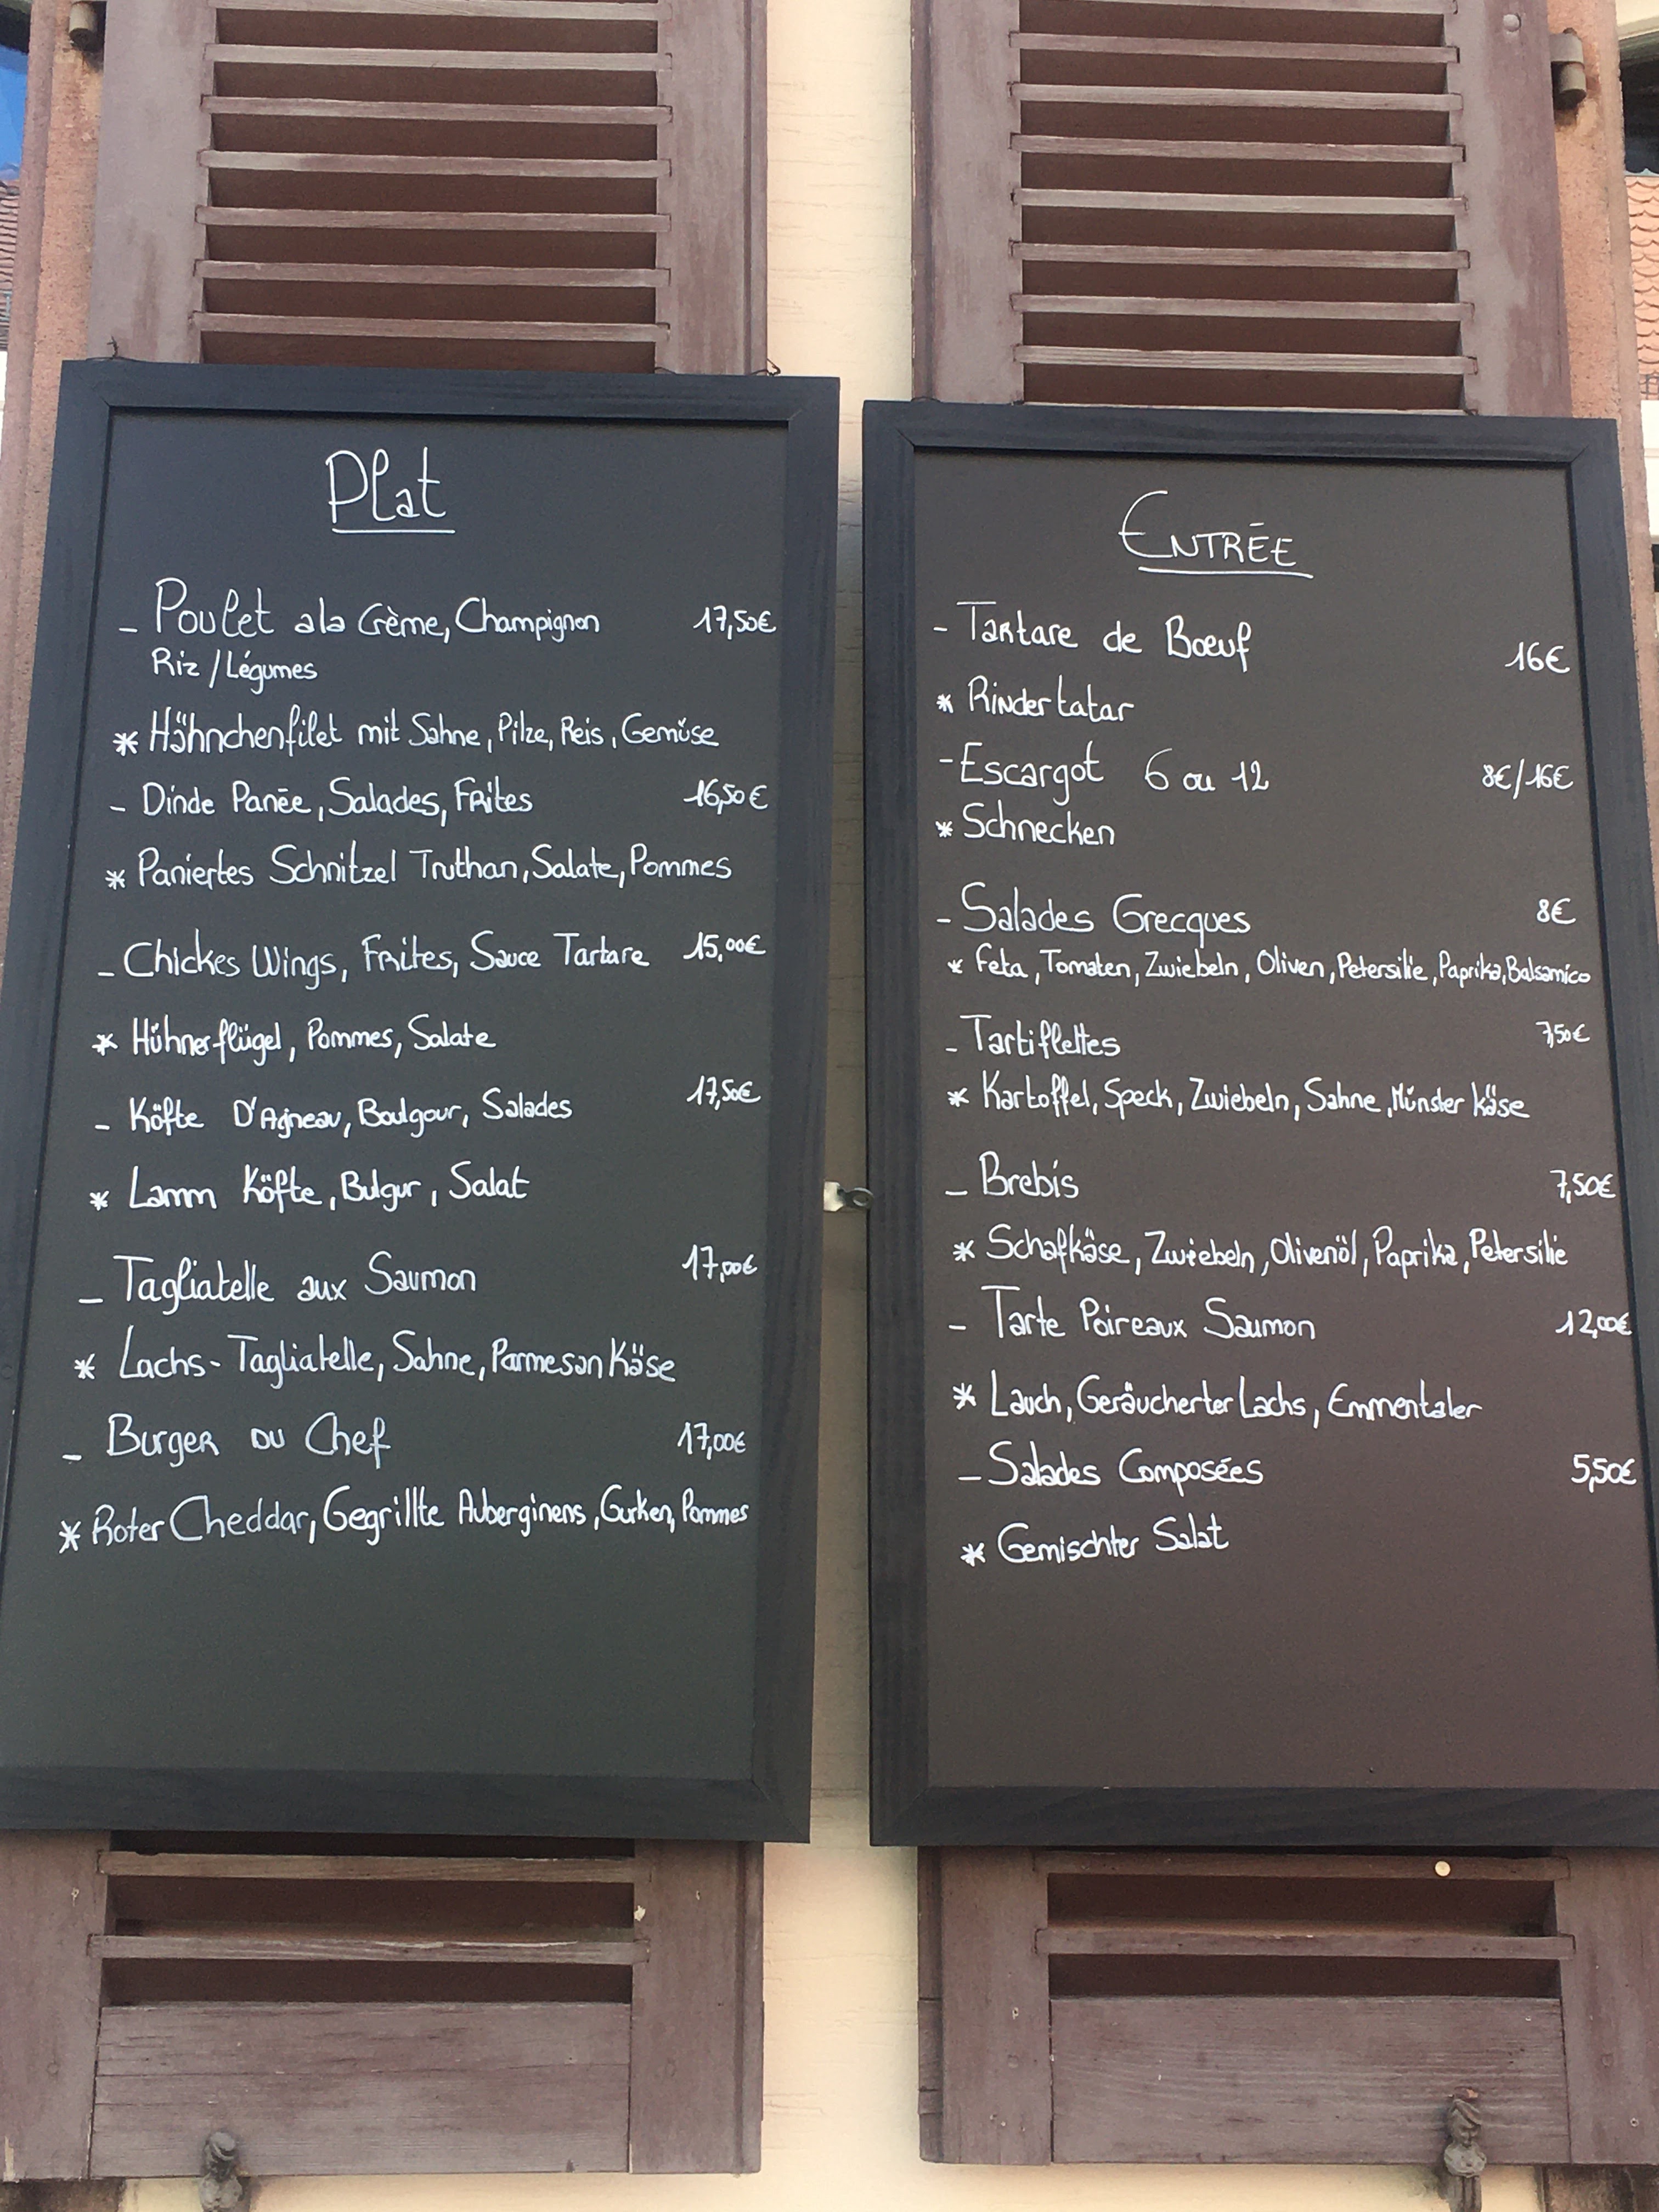 Plat
- Poulet a la Crème, Champignon 17,50€
Riz / Légumes
* Hähnchenfilet mit Sahne, Pilze, Reis, Gemüse
- Dinde Panée, Salades, Frites 16,50€
* Paniertes Schnitzel Truthan, Salate, Pommes
- Chickes Wings, Frites, Sauce Tartare 15,00€
* Hühnerflügel, Pommes, Salate
- Köfte D'Agneau, Boulgour, Salades 17,50€
* Lamm Köfte, Bulgur, Salat
- Tagliatelle aux Saumon 17,00€
* Lachs-Tagliatelle, Sahne, Parmesan Käse
- Burger du Chef 17,00€
* Roter Cheddar, Gegrillte Auberginens, Gurken, Pommes
ENTRÉE
- Tartare de Bœuf 16€
* Rindertatar
- Escargot 6 ou 12 8€/16€
* Schnecken
- Salades Grecques 8€
* Feta, Tomaten, Zwiebeln, Oliven, Petersilie, Paprika, Balsamico
- Tartiflettes 7,50€
* Kartoffel, Speck, Zwiebeln, Sahne, Münster Käse
- Brebis 7,50€
* Schafkäse, Zwiebeln, Olivenöl, Paprika, Petersilie
- Tarte Poireaux Saumon 12,00€
* Lauch, Geräucherter Lachs, Emmentaler
- Salades Composées 5,50€
* Gemischter Salat